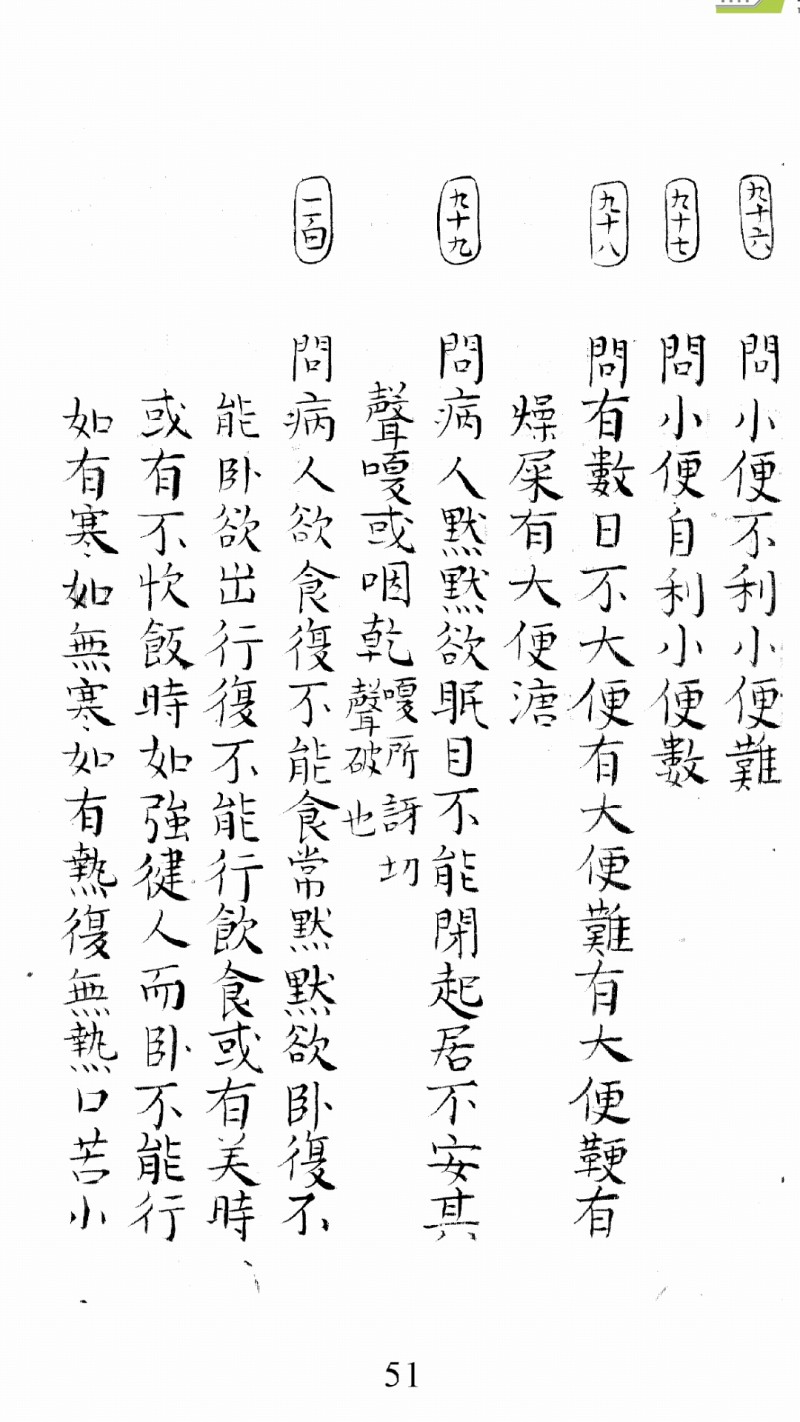 九十六 問小便不利小便難
九十七 問小便自利小便數
九十八 問有數日不大便有大便難有大便鞕有
燥屎有大便溏
九十九 問病人默默欲眠目不能閉起居不安其
聲嗄或咽乾 嗄所訝切
聲破也
一百 問病人欲食復不能食常默默欲臥復不
能臥欲出行復不能行飲食或有美時
或有不忺飯時如強健人而臥不能行
如有寒如無寒如有熱復無熱口苦小
51